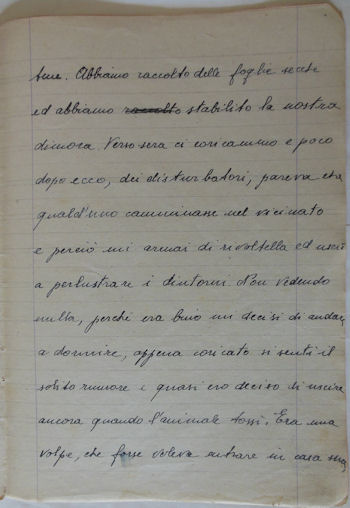 time. Abbiamo raccolto delle foglie secche
ed abbiamo raccolto stabilito la nostra
dimora. Verso sera ci coricammo e poco
dopo ecco, dei disturbatori, pareva che
quald'uno camminasse nel vicinato
e perciò mi armai di rivoltella ed uscii
a perlustrare i dintorni. Non vedendo
nulla, perché era buio mi decisi di andare
a dormire, appena coricato si sentì il
solito rumore e quasi ero deciso di uscire
ancora quando l'animale tossì. Era una
volpe, che forse voleva entrare in casa sua,